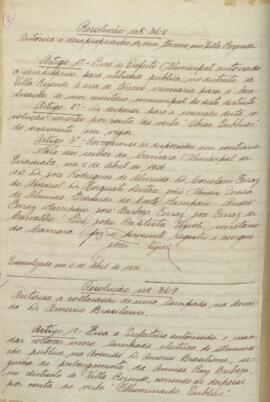 Resolução nº 368
Autorisa a desapropriação de um terreno em Villa Rezende
Artigo 1º - Fica o Prefeito Municipal autorisado
a desapropriar, por utilidade publica, no districto de
Villa Rezende a area de terreno necessaria para a
de um cemiterio municipal do dito districto
Artigo 2º - As despesas para a execução desta re-
solução correrão por conta da verba "Obras Publicas"
do orçamento em vigor.
Artigo 3º - Revogam-se as disposições em contrario.
Sala das sessões da Camara Municipal de
Piracicaba, de Abril de
José Rodrigues de Almeida, Dr. Coriolano Ferraz
do Amaral, Dr. Torquato Leitão, João
de Almeida, da Costa Sampaio,
Ferraz Sampaio, José Barboza Ferraz, José Ferraz de
Carvalho. Eu, João Baptista, secretario
da Camara, fiz o presente registro e assigno
João
Promulgada em de Abril de
Resolução nº 369
Autorisa a collocação de uma lampada na Aveni-
da D. Americo Brasiliense.
Artigo 1º - Fica a Prefeitura autorisada a man-
dar collocar uma lampada electrica de illumina-
ção publica, na Avenida D. Americo Brasiliense,
no prolongamento da Avenida Ruy Barboza,
no districto de Villa Rezende, correndo as despesas
por conta da verba "Illuminação Publica".